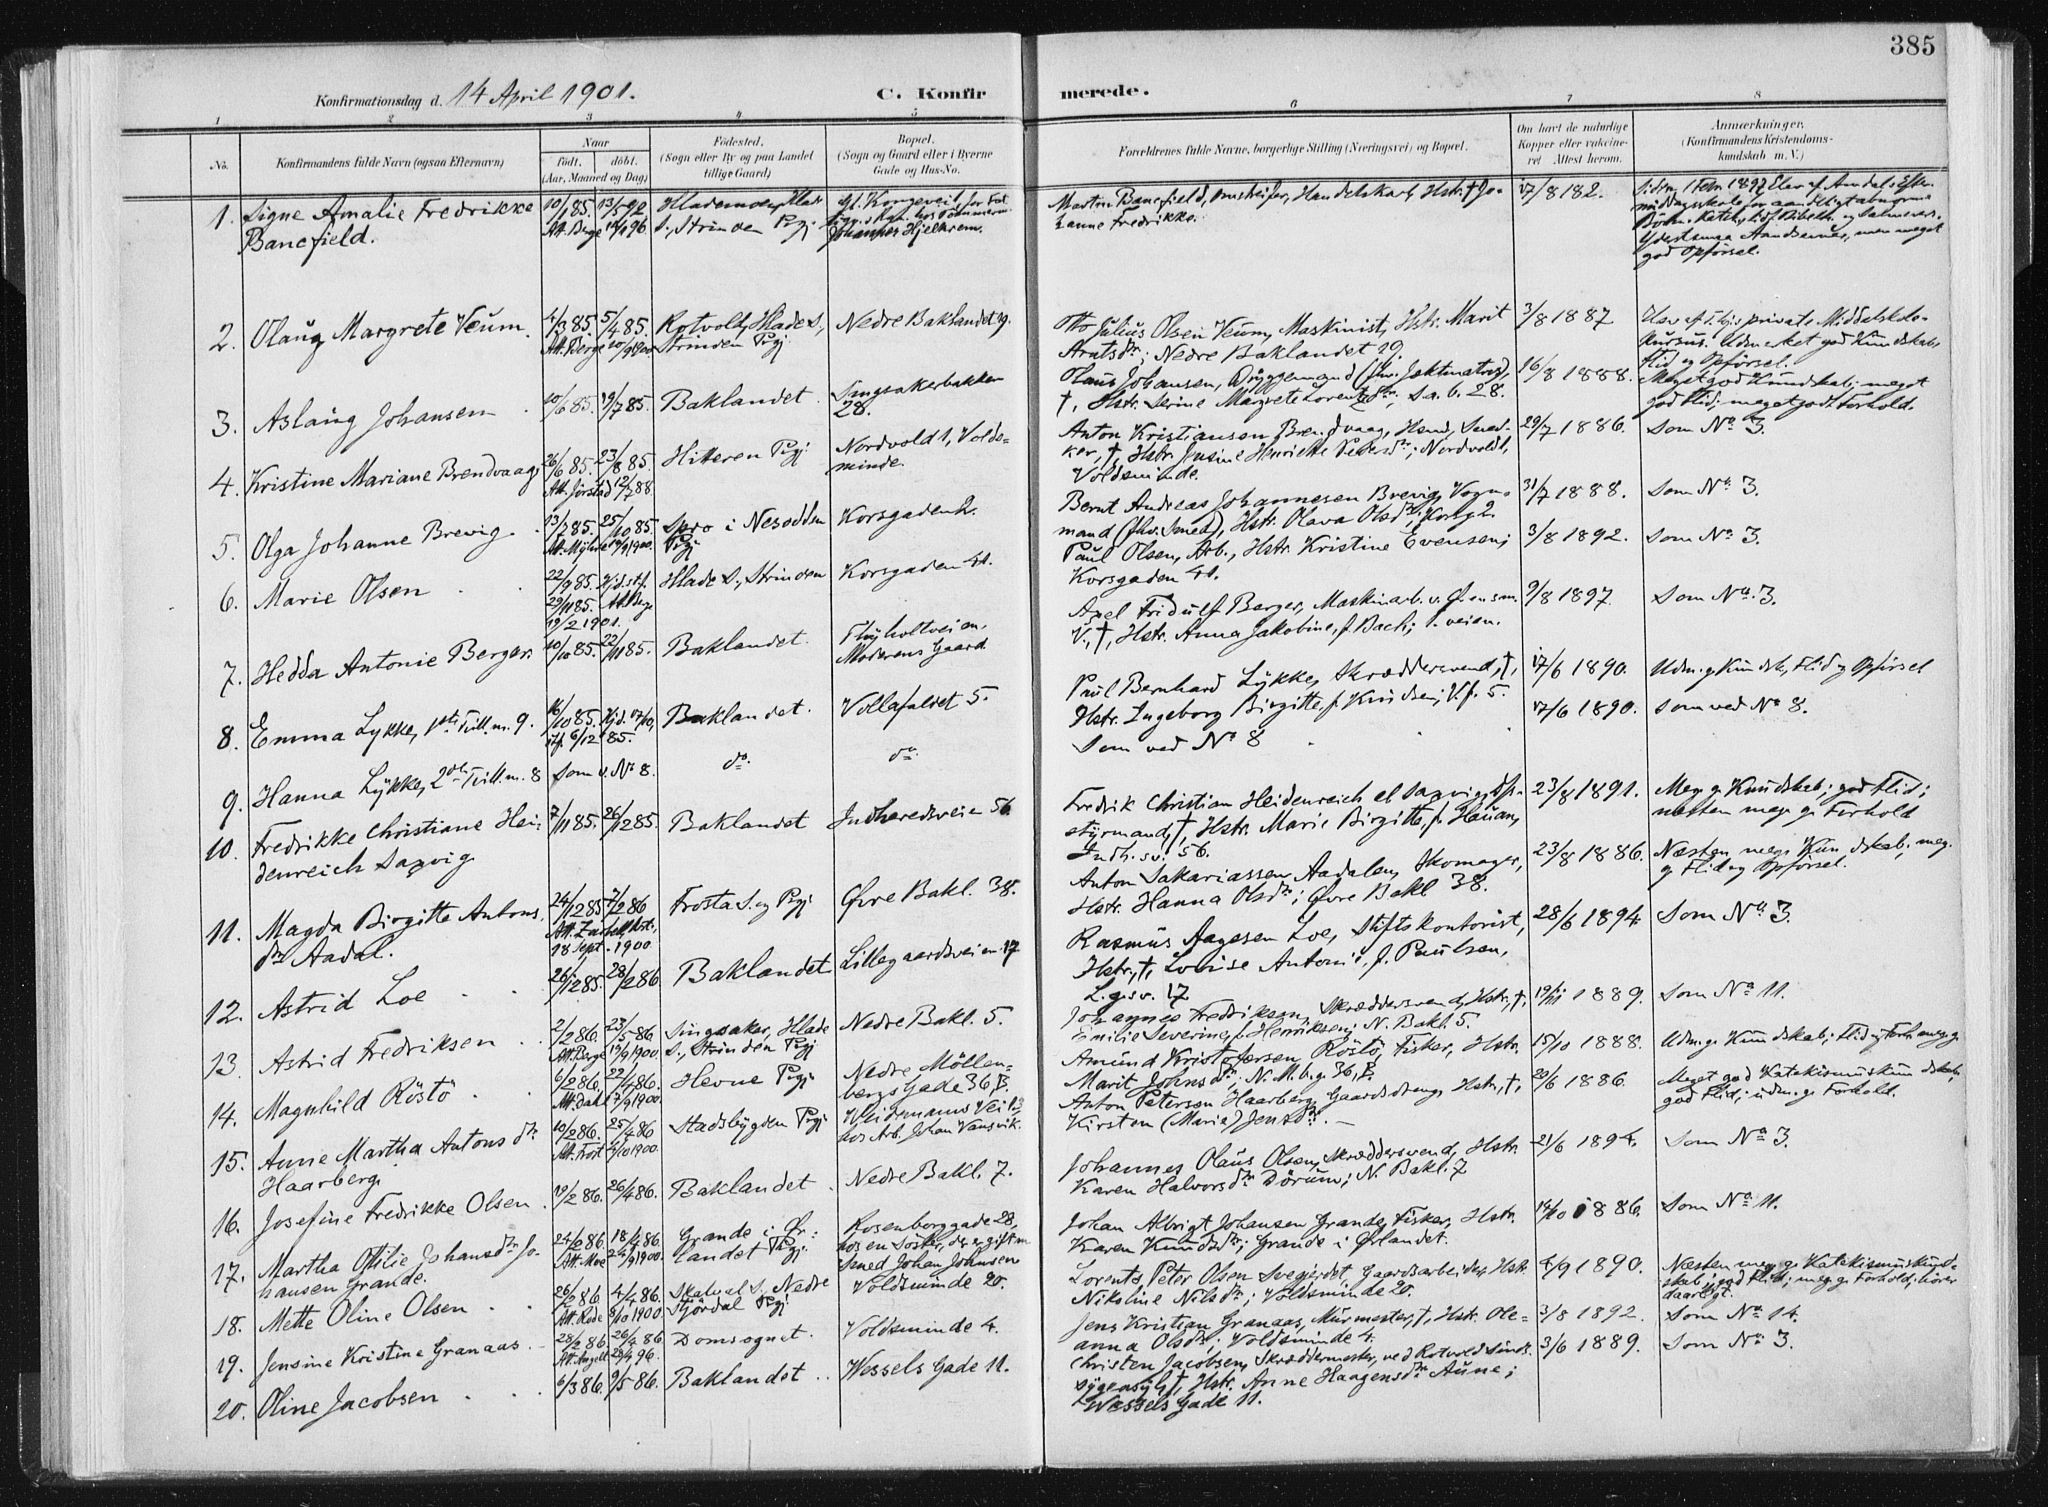 385
Konfirmationsdag d. 14 April 1901.
C. Konfirmerede.
1 2 3 4 5 6 7 8
No.
Konfirmandens fulde Navn (ogsaa Efternavn)
Naar
født. døbt.
(Aar, Maaned og Dag)
Fødested.
(Sogn eller By og paa Landet
tillige Gaard)
Bopæl.
(Sogn og Gaard eller i Byerne
Gade og Hus-No.
Forældrenes fulde Navne, borgerlige Stilling (Næringsvei) og Bopæl.
Om havt de naturlige
Kopper eller vaccineret
Attest herom.
Anmærkninger.
(Konfirmandens Kristendomskundskab
m. V.)
1. Signe Amalie Fredrikke
Bancfield.
10/1 85. 13/5 92
Att. Berge
Strinden Pgj
17/8 182.
god Opførsel.
2. Olaug Margrete Veum.
4/3 85. 5/4 85.
Att. Berge 20/9 1900
Rotvold, Hlade S.,
Strinden Pgj
Nedre Baklandet 19.
Otto Julius Olsen Veum, Maskinist, Hstr. Marit
Nedre Baklandet 19.
3/8 1887
Flid og Opførsel.
3. Aslaug Johansen
10/6 85. 19/7 85.
Baklandet
Singsakerbakken
28.
Olaus Johansen, Bryggemand
†, Hstr. Serine Margrete Lorentzdr., S.a.b. 28.
16/8 1888.
Meget god Kundskab; meget
god Flid; meget godt Forhold.
4. Kristine Mariane Brendvaag
26/6 85. 23/8 85.
Att. Jørstad 12/7 88.
Hitteren Pgj
Nordvold 1, Voldsminde.
Anton Kristiansen Brendvaag,
†, Hstr. Jensine Henriette Pedersdr.; Nordvold 1,
Voldsminde.
29/7 1886.
Som No. 3.
5. Olga Johanne Brevig.
25/10 85
Spro i Nesodden
Pgj
Korsgaden 2.
Bernt Andreas Johannesen Brevig, Vognmand
(fhv. Smed), Hstr. Olava Olsdr; Korsg. 2.
31/7 1888.
Som No. 3.
6. Marie Olsen
22/9 85. Hjd. stf.
29/11 85. Att. Berge
19/2 1901.
Hlade S., Strinden
Korsgaden 41.
Paul Olsen, Arb., Hstr. Kristine Evensen;
Korsgaden 41.
3/8 1892.
Som No. 3.
7. Hedda Antonie Berger.
10/10 85. 22/11 85.
Baklandet
Thyholtveien,
Moderens Gaard
Axel Fridulf Berger, Maskinarb.
†, Hstr. Anna Jakobine, f. Bach;
9/8 1897.
Som No. 3.
8. Emma Lykke, 1ste Tvill. m. 9.
16/10 85. Hjd. 17/10,
6/12 85.
Baklandet.
Vollafaldet 5.
Paul Bernhard Lykke, Skræddersvend, †,
Hstr. Ingeborg Birgitte, f. Knudsen; V.f. 5.
17/6 1890.
Udm. g. Kundsk., Flid og Opførsel
9. Hanna Lykke, 2den Tvill. m. 8
Som v. No 8.
do.
do.
Som ved No 8
17/6 1890.
Som ved No 8.
10. Fredrikke Christiane Heidenreich
Saxvig
7/11 85. 26/12 85.
Baklandet
Indheredsveien 56
Fredrik Christian Heidenreich
styrmand, †, Hstr. Marie Birgitte, f. Hauan,
Indh.sv. 56.
23/8 1891.
Meg. g. Kundskab; god Flid;
næsten meg. g. Forhold
11. Magda Birgitte Antonsdr.
Aadal.
24/12 85 7/2 86
18 Sept. 1900
Frosta S. og Pgj
Øvre Bakl. 38.
Anton Sakariassen Aadalen, Skomager,
Hstr. Hanna Olsdr; Øvre Bakl 38.
23/8 1886.
Næsten meg. g. Kundskab; meg.
g. Flid og Opførsel.
12. Astrid Loe
26/12 85. 28/2 86
Baklandet
Lillegaardsveien 17
Rasmus Aagesen Loe, Stiftskontorist,
Hstr., †, Lovise Antonie, f. Paulsen,
L.g.sv. 17
28/6 1894.
Som No. 3.
13. Astrid Fredriksen
2/2 86. 23/5 86
Att. Berge 19/9 1900.
Singsaker, Hlade
S., Strinden Pgj
Nedre Bakl. 5.
Johannes Fredriksen, Skræddersvend, Hstr., †,
Emilie Severine, f. Henriksen; N. Bakl. 5.
19/11 1889.
Som No. 11.
14. Magnhild Röstö
6/2 86. 22/4 86.
Att. Dahl 7/9 1900.
Hevne Pgj.
Nedre Möllenbergs
Gade 36, B.
Amund Kristofersen Röstö, Fisker, Hstr.
Marit Johnsdr; N. M.b.g. 36, B.
15/10 1888.
Udm. g. Kundskab; Flid og Forh. meg. g.
15. Anne Martha Antonsdr.
Haarberg.
10/2 86. 25/4 86
Att. Fost
Stadsbygden Pgj
Weidemanns Vei 13
hos Arb. Johan Vansvik.
Anton Petersen Haarberg, Gaardsdreng, Hstr., †,
Kirsten (Marie) Jensdr.
20/6 1886.
Meget god Katekismuskundskab,
god Flid; udm. g. Forhold.
16. Josefine Fredrikke Olsen.
19/2 86. 26/4 86.
Baklandet
Nedre Bakl. 7.
Johannes Olaus Olsen, Skræddersvend, Hstr.
Karen Halvorsdr. Dörum; N. Bakl. 7
21/6 1894.
Som No. 3.
17. Martha Otilie Johansdr. Johansen
Grande.
24/2 86. 18/4 86
Att. Moe 24/9 1900.
Grande i Ørlandet
Pgj.
Rosenborggade 28,
hos en Søster, der er gift m.
Smed Johan Johnsen
Johan Albrigt Johansen Grande, Fisker, Hstr.
Karen Knudsdr; Grande i Ørlandet.
14/10 1886.
Som No. 11.
18. Mette Oline Olsen
26/2 86 4/4 86.
Att. Rode 8/10 1900.
Skatval S. Nedre
Stjördal Pgj
Voldsminde 20.
Lorents Peter Olsen Svegjerdet, Gaardsarbeider, Hstr.
Nikoline Nilsdr; Voldsminde 20.
4/9 1890.
Næsten meg. g. Katekismuskundskab;
god Flid; meg. g. Forhold; hører
daarligt.
19. Jensine Kristine Granaas.
28/2 86
Domsognet.
Voldsminde 4.
Jens Kristian Granaas, Murmester, †, Hstr. Oleanna
Olsdr.; Voldsminde 4.
3/8 1892.
Som No. 14.
20. Oline Jacobsen
6/3 86. 9/5 86.
Baklandet
Wessels Gade 11.
Christen Jacobsen, Skræddermester, ved Rotvold Sindssygeasyl,
†, Hstr. Anne Haagensdr. Aune;
Wessels Gade 11.
3/6 1889.
Som No. 3.